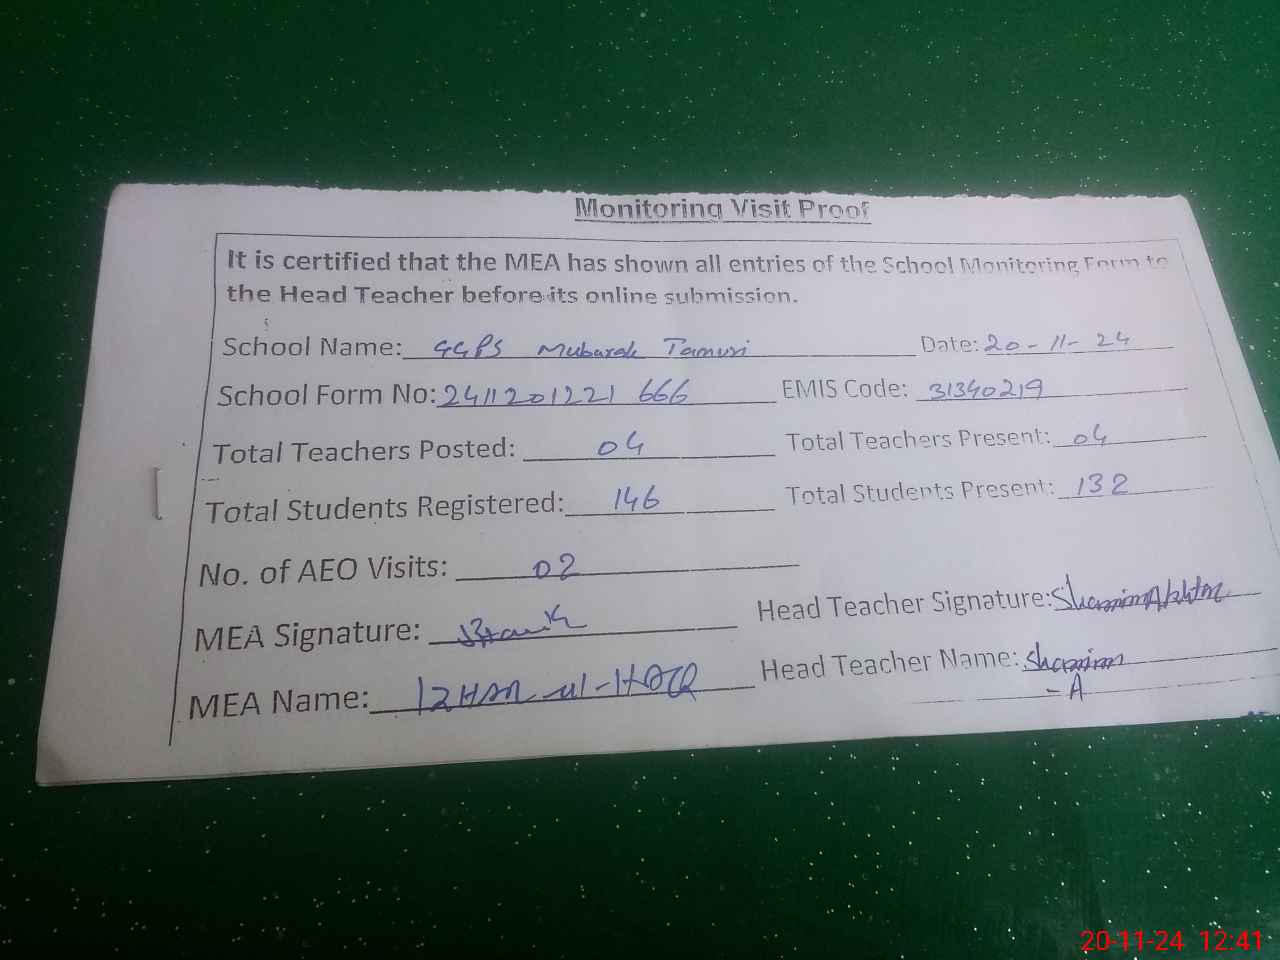 Monitoring Visit Proof
It is certified that the MEA has shown all entries of the School Monitoring Form to
the Head Teacher before its online submission.
School Name: GGPS Mubarak Tamuri Date: 20-11-24
School Form No: 2411201221 666 EMIS Code: 31340219
Total Teachers Posted: 04 Total Teachers Present: 04
Total Students Registered: 146 Total Students Present: 132
No. of AEO Visits: 02
MEA Signature: Head Teacher Signature: Shamim Akhtar
MEA Name: IZHAR-ul-HAQ Head Teacher Name: Shamim
-A
20-11-24 12:41